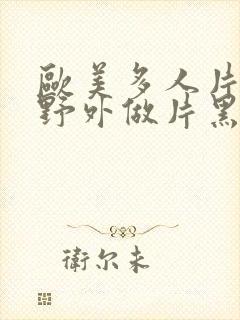 歐美多人片
野外做片黑
衛尔未